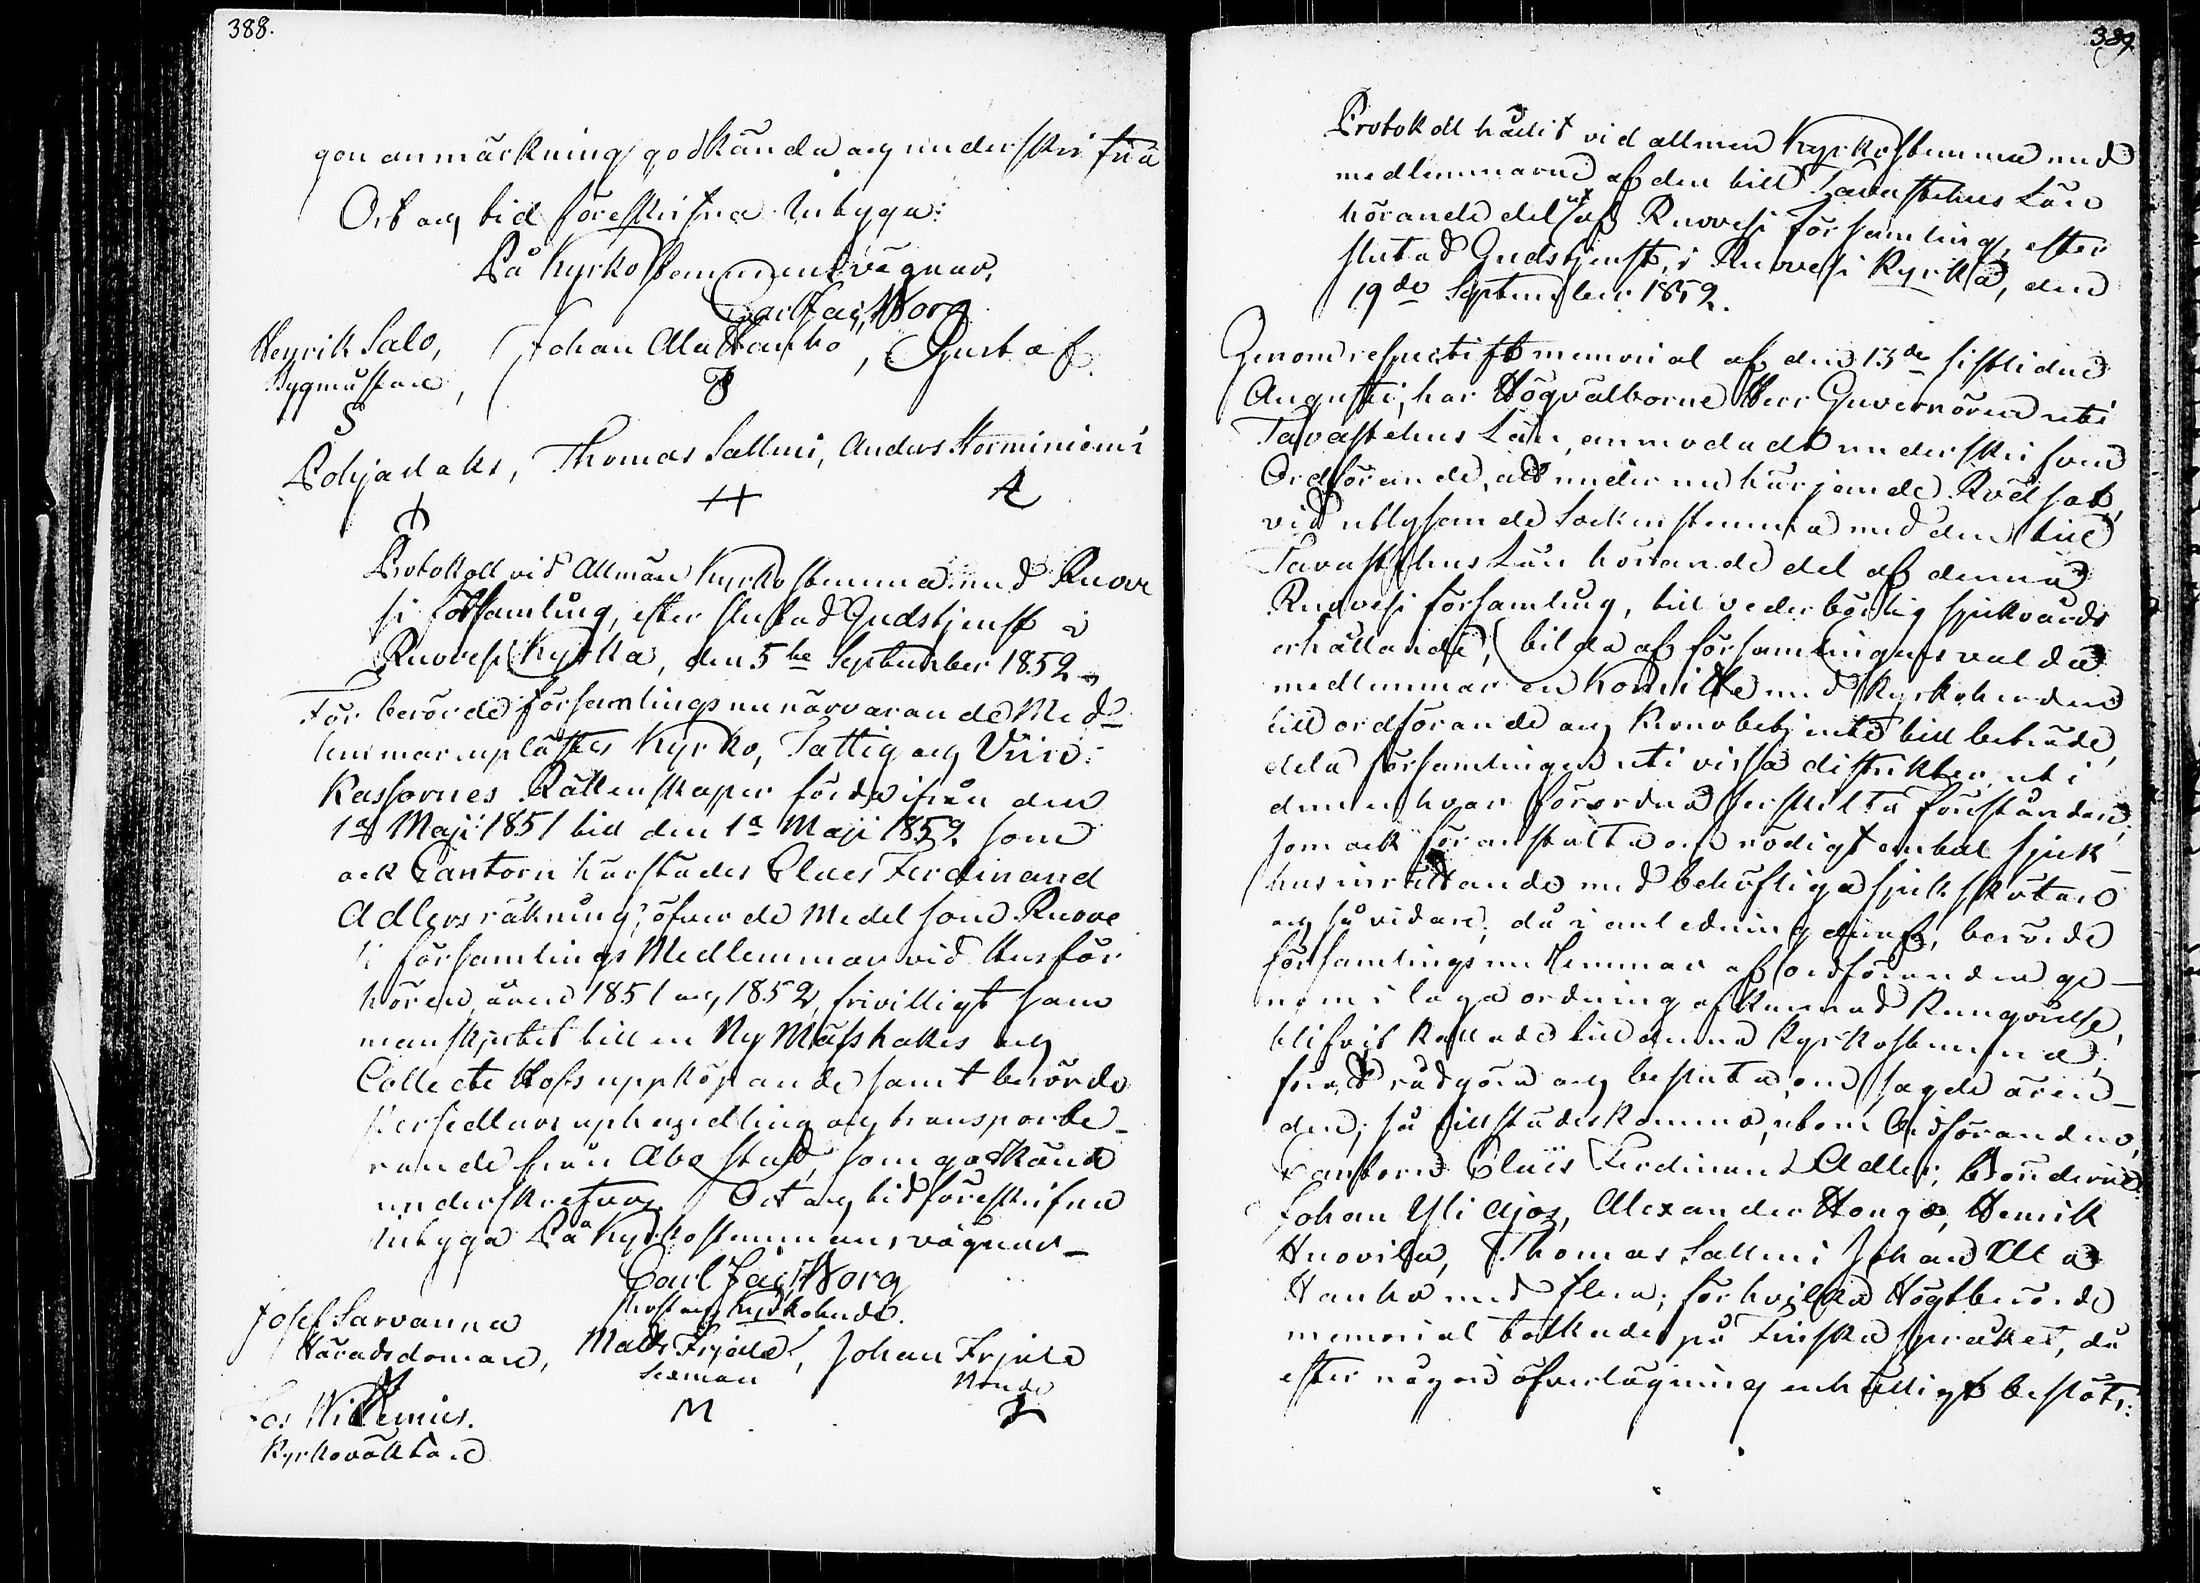 388.
gon anmärkning godkända och underskrifna
Ort och tid föreskrifna intyga:
På Kyrkostemmans vägnar,
Carl Jac. Worg
Henrik Salo, Johan Ala Hanho, Gustaf
Byggmästare,
Pohjaslaks, Thomas Sallmi, Anders Storminiemi
H A
Protokoll vid Allmän Kyrkostemma med Ruove
si församling, efter slutad Gudstjenst i
Ruovesi Kyrka, den 5te September 1852.
För berörde församlings nu närvarande Med-
lemmar uplästes Kyrko, Fattig och
Kassornes Räkenskaper förda ifrån den
1a Maji 1851 till den 1a Maji 1852. som
ock Cantorn härstädes Claes Ferdinand
Adlers räkning, öfver de Medel som Ruove
si församlings Medlemmar vid Husför
hören åren 1851 och 1852, frivilligt sam
manskjutit till en Ny Mässhakes och
Collecte Hofs uppköpande samt berörde
Persedlars uphandling och transporte-
rande från Åbo stad, som godkända
underskrefvos. Ort och tid föreskrifna
intyga På Kyrkostemmans vägnar-
Carl Jac. Worg
Prost och Kyrkoherde.
Josef Sarvanna
Häradsdomare, Matts Frjala, Johan Frjala
Sexman Bonde
M
Willenius.
Kyrkovältare
389
Protokoll hållit vid allmen Kyrkostemma med
medlemmarne af den till Tavastehus Län
hörande del utaf Ruovesi församling, efter
slutad Gudstjenst, i Ruovesi Kyrka, den
19de September 1852.
Genom respectift memorial af den 13de sistlidne
Augusti, har Högvälborne Herr Guvernören uti
Tavastehus Län, anmodadt underskrifven
Ordförande, att under nu härjande Rödsot,
vid utlysande Sockenstemma med den till
Tavastehus Län hörande del af denna
Ruovesi församling, till vederbörlig sjukvårds
erhållande, bilda af församlingens valda
medlemmar en Komité med Kyrkoherden
till ordförande och Kronobetjente till beträde,
dela församlingen uti vissa distrikter, uti
dem en hvar förordna serskilta föreståndare,
som ock föranstalta om nödigt antal sjuk-
hus inrättande med behöfliga sjukskötare
och så vidare; då i anledning deraf, berörde
församlings medlemmar af ordföranden ge-
nom i laga ordning afkunnad Kungörelse,
blifvit kallade till denna Kyrkostemma,
för att rådgöra och besluta, om sagde ären-
den; så tillstädeskommo, utom Ordföranden,
Cantorn Claës Ferdinand Adler, Bönderne
Johan Yli Ajos, Alexander Hongo, Henrik
Huovila, Thomas Sallmi Johan Ala
Hanho med flera; för hvilka Högtberörde
memorial tolkades på Finska språket, då
efter någon öfverlägning enhälligt beslöts: